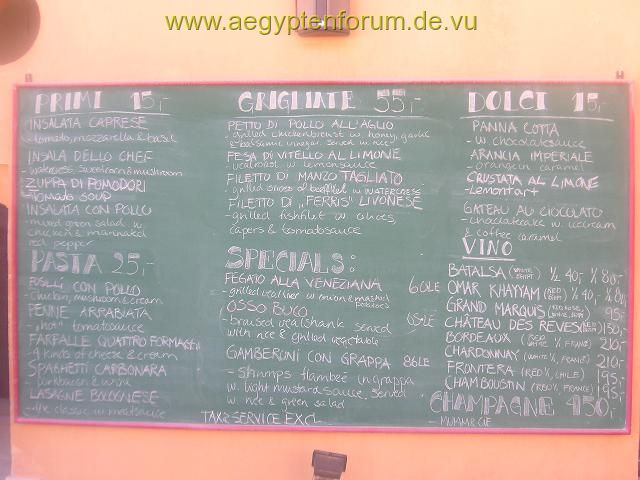 www.aegyptenforum.de.vu
PRIMI 15,-
INSALATA CAPRESE
- tomato, mozzarella & basil
INSALA DELLO CHEF
- watercress, sweetcorn & mushroom
ZUPPA DI POMODORI
- Tomato soup
INSALATA CON POLLO
- mixed green salad w.
chicken & marinated
red pepper
PASTA 25,-
FUSILLI CON POLLO
- chicken, mushroom & cream
PENNE ARRABIATA
- "hot" tomatosauce
FARFALLE QUATTRO FORMAGGI
- 4 kinds of cheese & cream
SPAGHETTI CARBONARA
- & wine
LASAGNE BOLOGNESE
- the classic w meatsauce
GRIGLIATE 55,-
PETTO DI POLLO ALL'AGLIO
- Grilled chickenbreast w honey, garlic
& balsamic vinegar. served w rice
FESA DI VITELLO AL LIMONE
- vealroast w lemonsauce
FILETTO DI MANZO TAGLIATO
- grilled slices of beeffilet w watercress
FILETTO DI "FERRIS" LIVONESE
- grilled fishfilet w olives,
capers & tomatosauce
SPECIALS:
FEGATO ALLA VENEZIANA 60LE
- grilled vealliver w onion & mashed
potatoes
OSSO BUCO 65LE
- braised vealshank served
with rice & grilled vegetable
GAMBERONI CON GRAPPA 86LE
- shrimps flambeé in grappa
w. light mustard sauce, served
w rice & green salad
TAX & SERVICE EXCL.
DOLCI 15,-
PANNA COTTA
- w chocolatesauce
ARANCIA IMPERIALE
- orange in caramel
CRUSTATA AL LIMONE
- Lemontart
GATEAU AU CIOCOLATO
- chocolatecake w icecream
& coffee caramel
VINO
BATALSA (WHITE, EGYPT) ½ 40,- ¹⁄₁ 80,-
OMAR KHAYYAM (RED) ½ 40,- ¹⁄₁ 80,-
GRAND MARQUIS 95,-
CHÂTEAU DES REVES 150,-
BORDEAUX (RED & WHITE ¹⁄₁, FRANCE) 210,-
CHARDONNAY (WHITE ¹⁄₁, FRANCE) 210,-
FRONTERA (RED ¹⁄₁, CHILE) 195,-
CHAMBOUSTIN (RED ¹⁄₁, FRANCE) 195,-
CHAMPAGNE 450,-
- MUMM & CIE